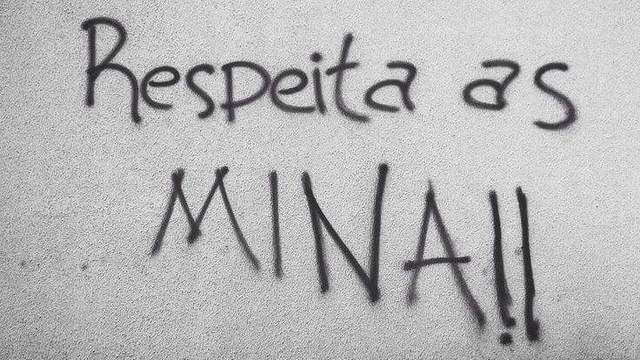 Respeita as
MINA!!